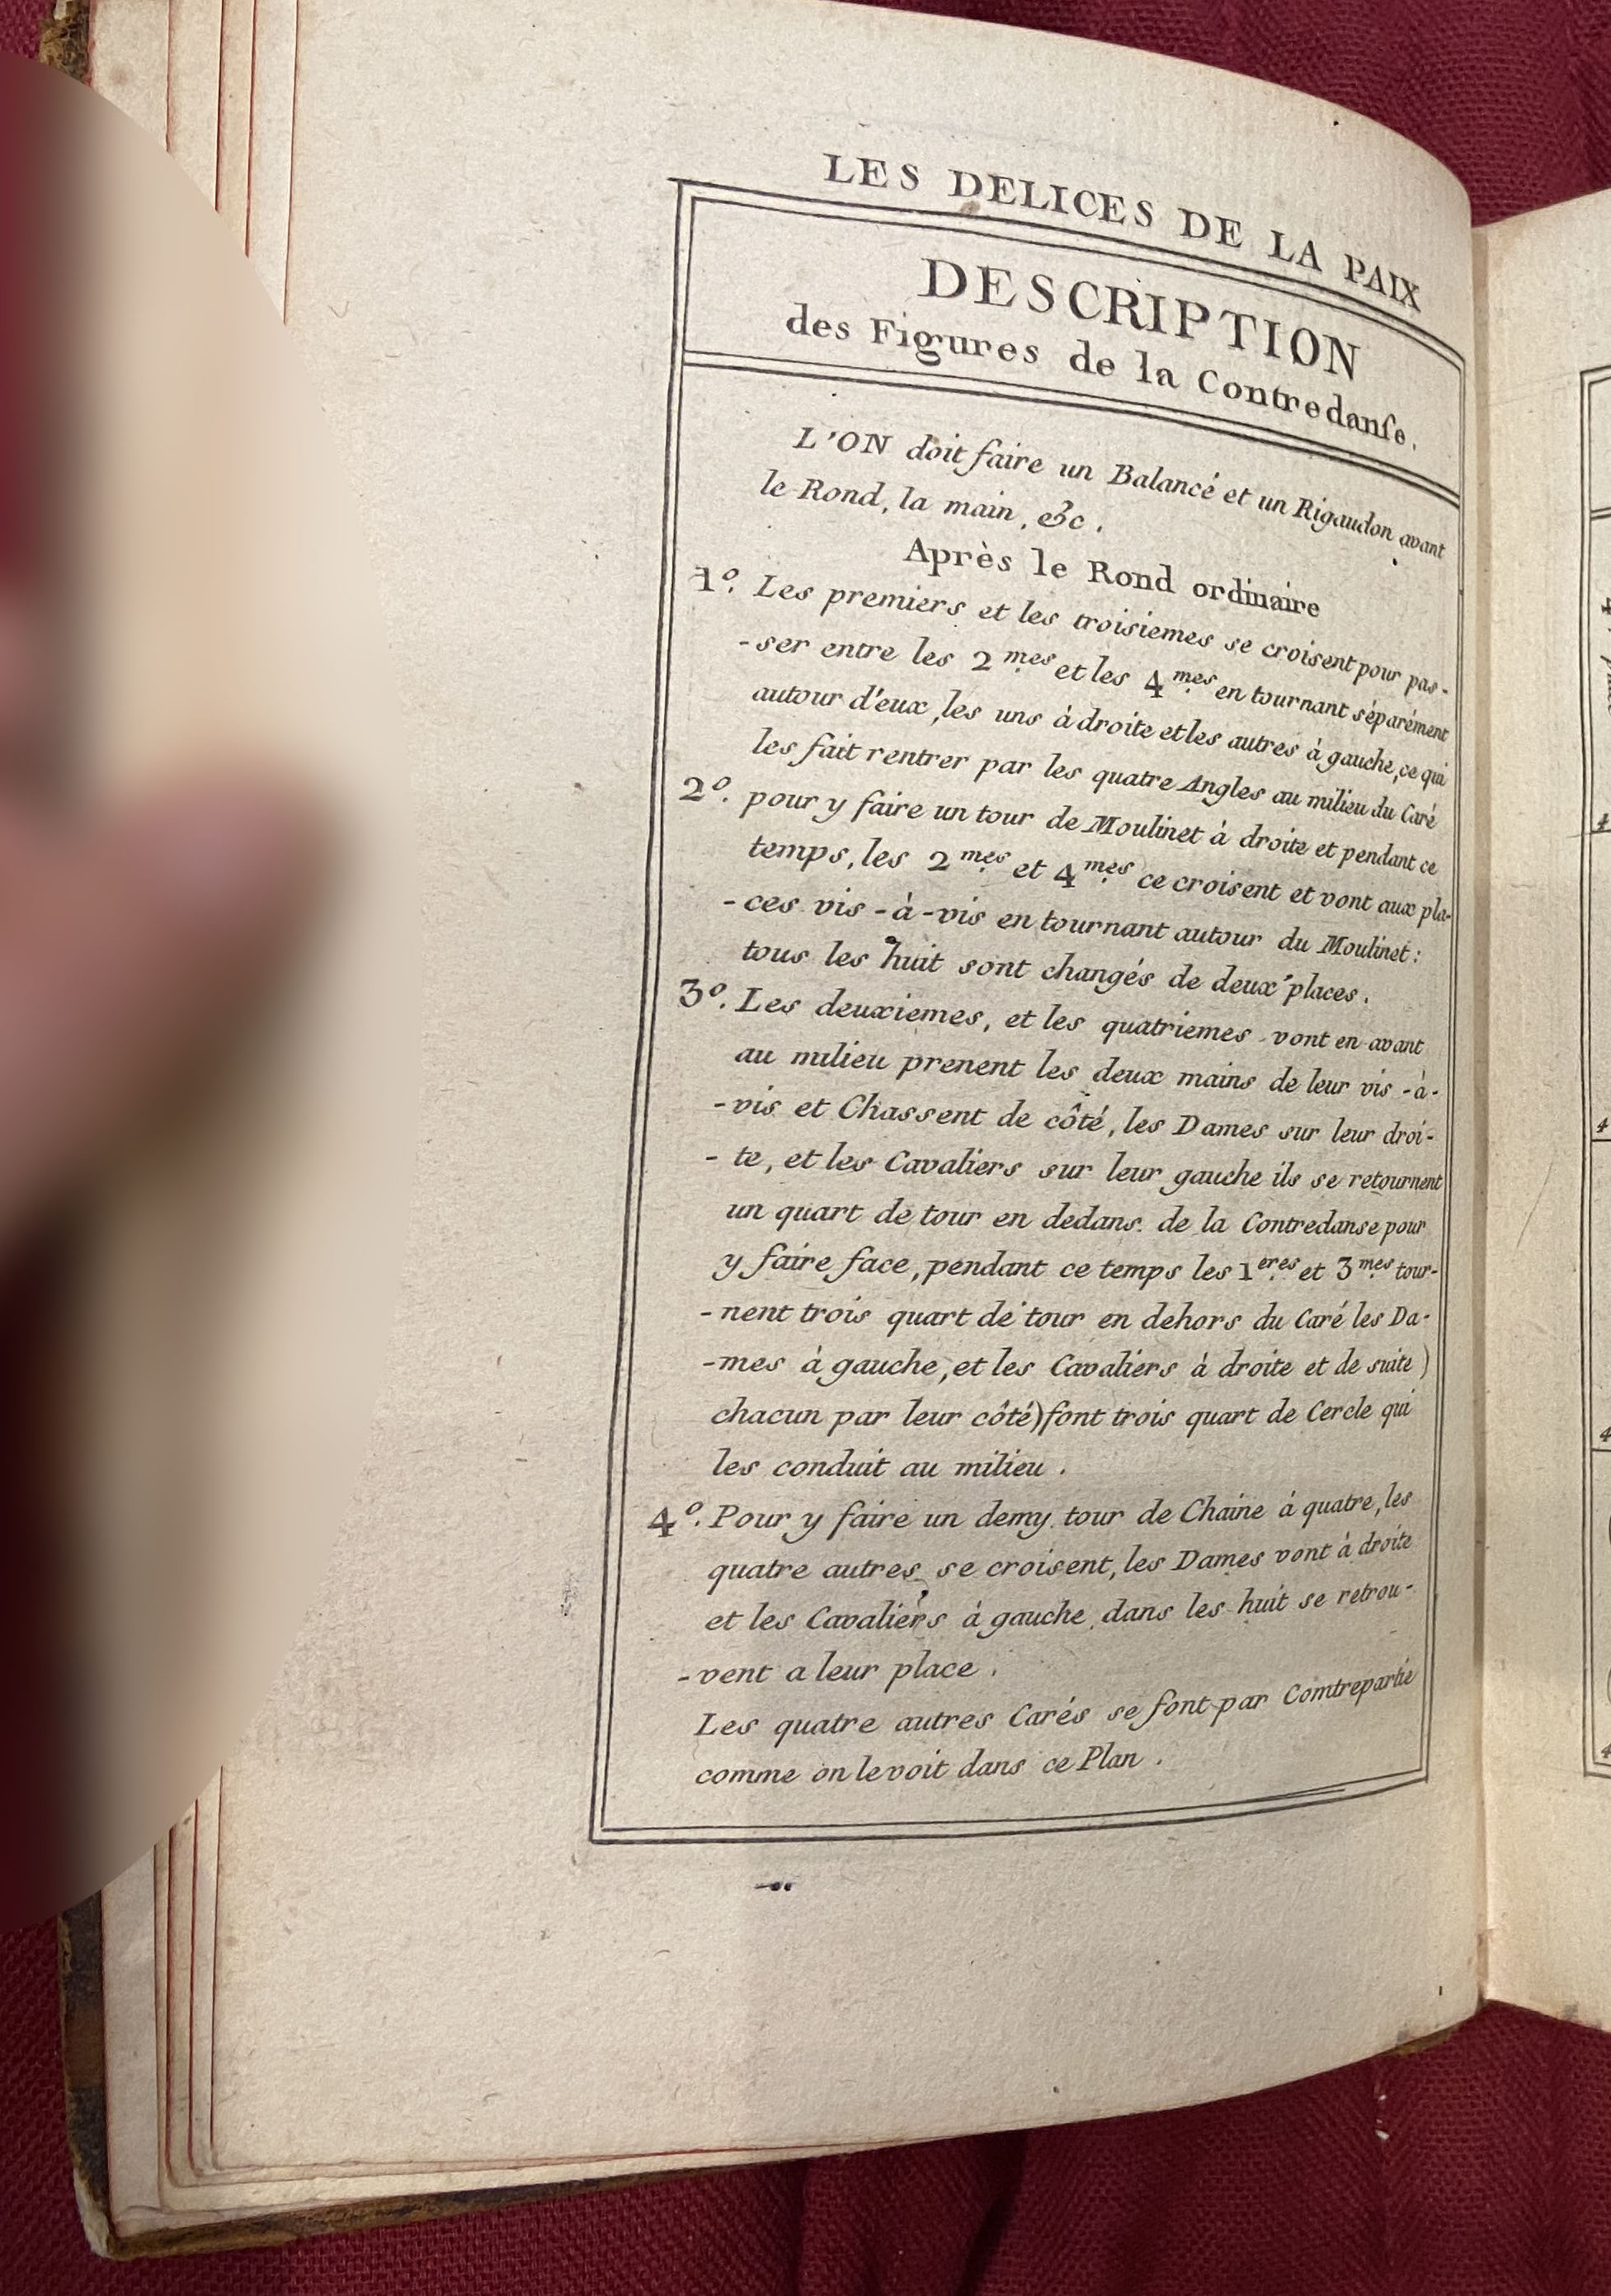 LES DELICES DE LA PAIX
DESCRIPTION
des Figures de la Contredanſe.
L'ON doit faire un Balancé et un Rigaudon avant
le Rond, la main, &c.
Après le Rond ordinaire
1º. Les premiers et les troisiemes se croisent pour pas-
-ser entre les 2mes et les 4mes en tournant séparément
autour d'eux, les uns à droite et les autres à gauche, ce qui
les fait rentrer par les quatre Angles au milieu du Caré
2º. pour y faire un tour de Moulinet à droite et pendant ce
temps, les 2mes et 4mes ce croisent et vont aux pla-
-ces vis-à-vis en tournant autour du Moulinet:
tous les huit sont changés de deux places.
3º. Les deuxiemes, et les quatriemes vont en avant
au milieu prenent les deux mains de leur vis-à-
-vis et Chassent de côté, les Dames sur leur droi-
-te, et les Cavaliers sur leur gauche ils se retournent
un quart de tour en dedans de la Contredanse pour
y faire face, pendant ce temps les 1eres et 3mes tour-
-nent trois quart de tour en dehors du Caré les Da-
-mes à gauche, et les Cavaliers à droite et de suite)
chacun par leur côté) font trois quart de Cercle qui
les conduit au milieu.
4º. Pour y faire un demy tour de Chaine à quatre, les
quatre autres se croisent, les Dames vont à droite
et les Cavaliers à gauche, dans les huit se retrou-
-vent a leur place.
Les quatre autres Carés se font par Comtrepartie
comme on le voit dans ce Plan.
4
4
4
4
4